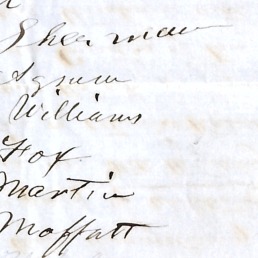 Sherman
Agnew
Williams
Fox
Martin
Moffatt